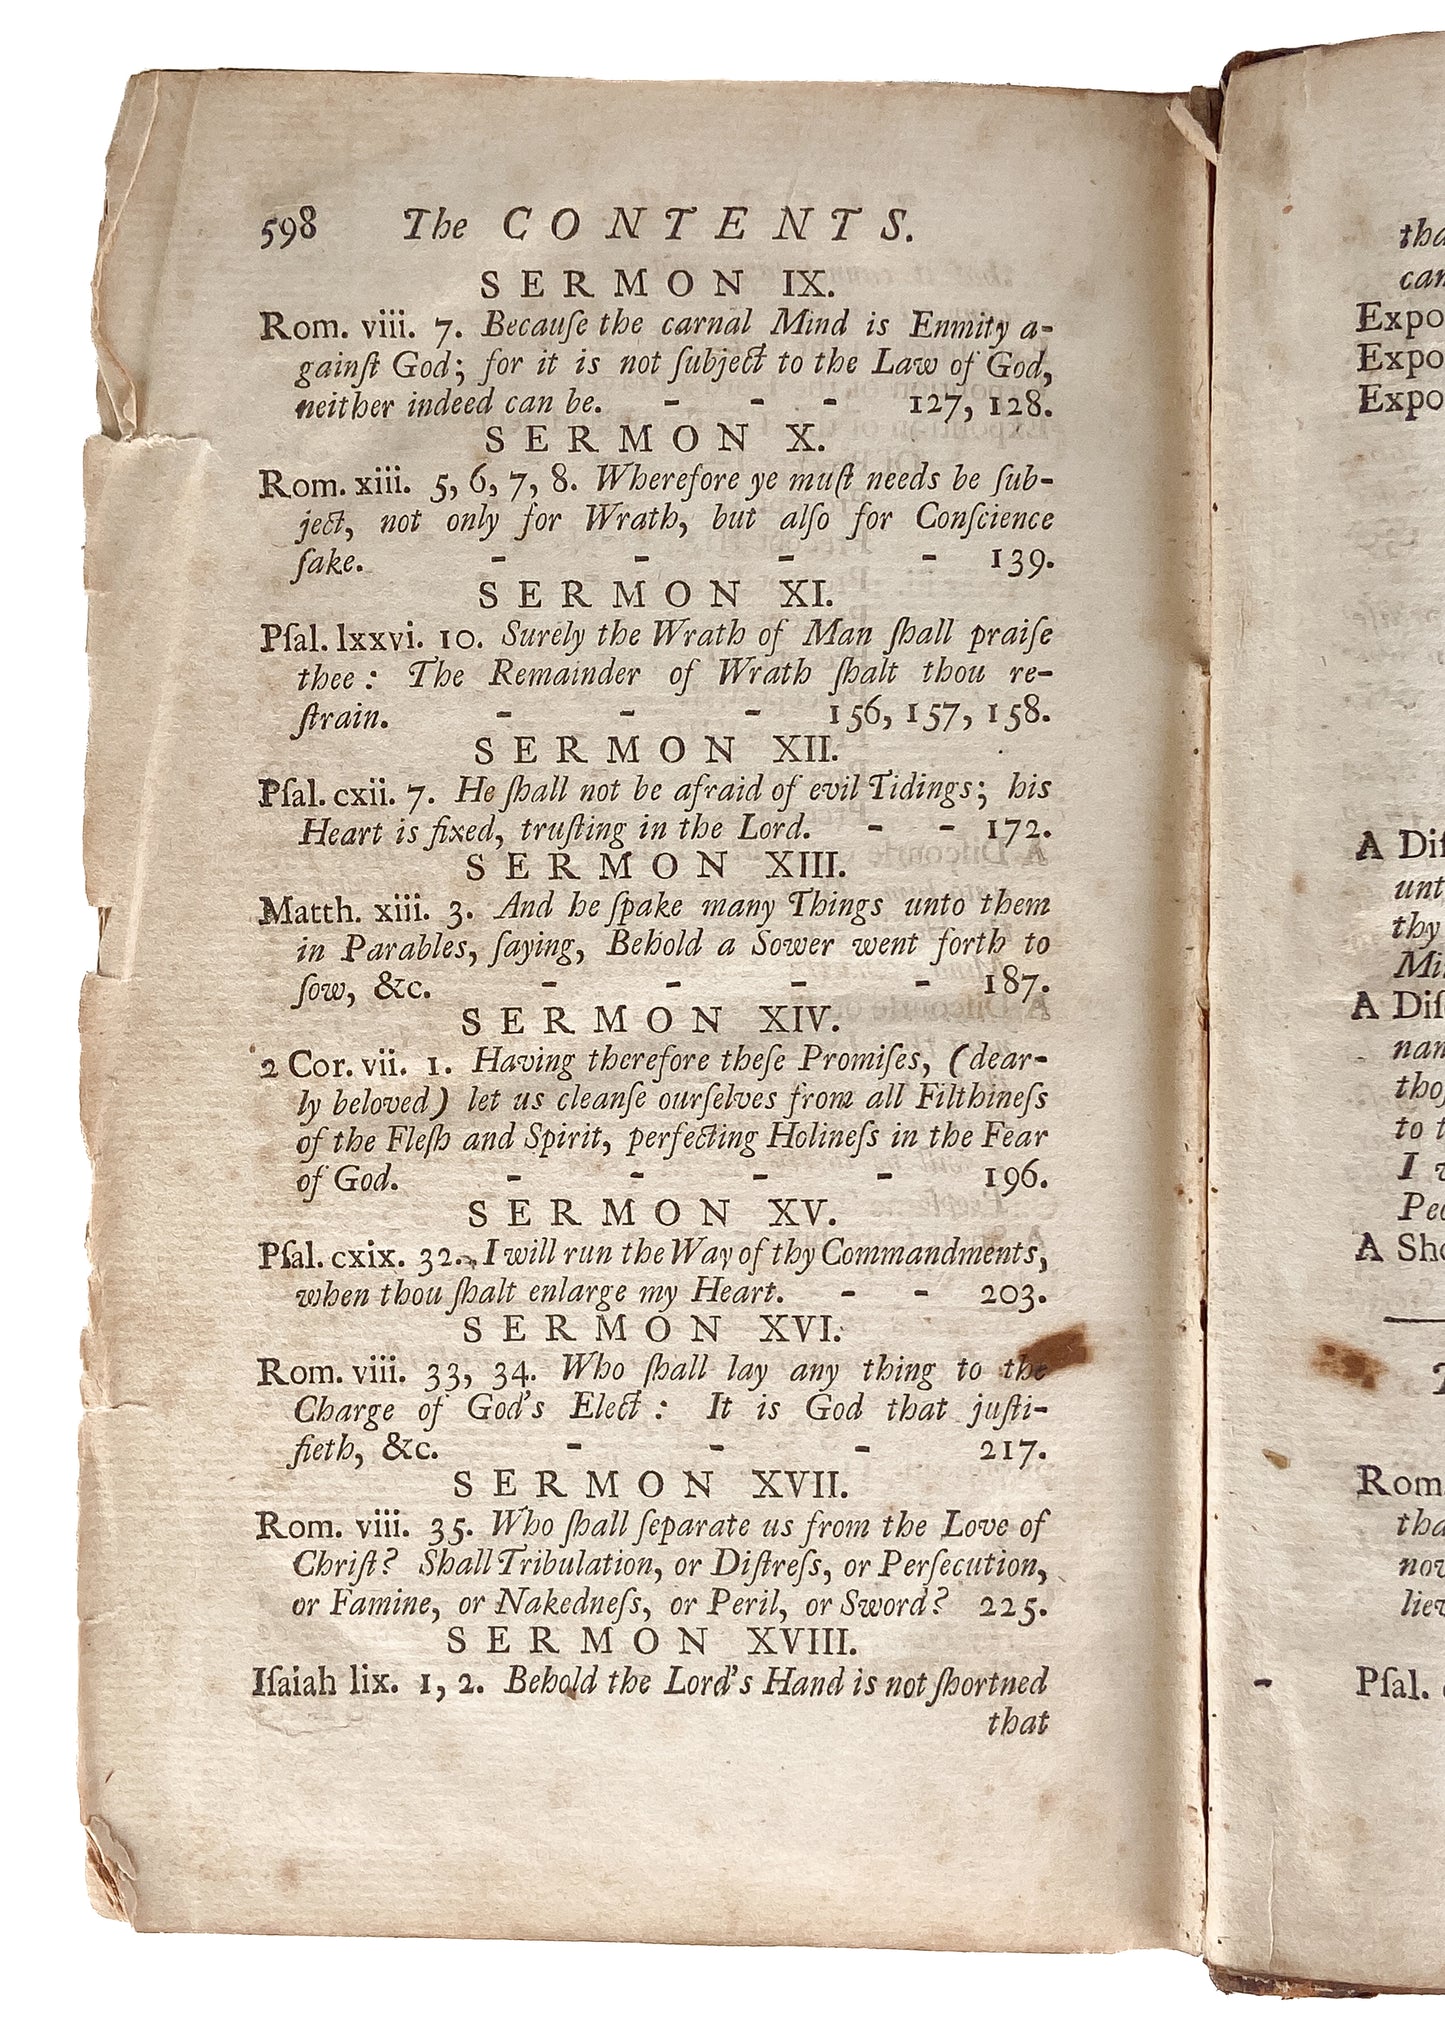 598 The CONTENTS.
SERMON IX.
Rom. viii. 7. Becauſe the carnal Mind is Enmity a-
gainſt God; for it is not ſubject to the Law of God,
neither indeed can be. - - - 127, 128.
SERMON X.
Rom. xiii. 5, 6, 7, 8. Wherefore ye muſt needs be ſub-
ject, not only for Wrath, but alſo for Conſcience
ſake. - - - - 139.
SERMON XI.
Pſal. lxxvi. 10. Surely the Wrath of Man ſhall praiſe
thee: The Remainder of Wrath ſhalt thou re-
ſtrain. - - - 156, 157, 158.
SERMON XII.
Pſal. cxii. 7. He ſhall not be afraid of evil Tidings; his
Heart is fixed, truſting in the Lord. - - 172.
SERMON XIII.
Matth. xiii. 3. And he ſpake many Things unto them
in Parables, ſaying, Behold a Sower went forth to
ſow, &c. - - - - 187.
SERMON XIV.
2 Cor. vii. 1. Having therefore theſe Promiſes, (dear-
ly beloved) let us cleanſe ourſelves from all Filthineſs
of the Fleſh and Spirit, perfecting Holineſs in the Fear
of God. - - - - 196.
SERMON XV.
Pſal. cxix. 32. I will run the Way of thy Commandments,
when thou ſhalt enlarge my Heart. - - 203.
SERMON XVI.
Rom. viii. 33, 34. Who ſhall lay any thing to the
Charge of God's Elect: It is God that juſti-
fieth, &c. - - - 217.
SERMON XVII.
Rom. viii. 35. Who ſhall ſeparate us from the Love of
Chriſt? Shall Tribulation, or Diſtreſs, or Perſecution,
or Famine, or Nakedneſs, or Peril, or Sword? 225.
SERMON XVIII.
Iſaiah lix. 1, 2. Behold the Lord's Hand is not ſhortned
that
Expo
Expo
Expo
A
unt
thy
A
nam
to t
I
A
Rom.
tha
lie
- Pſal.